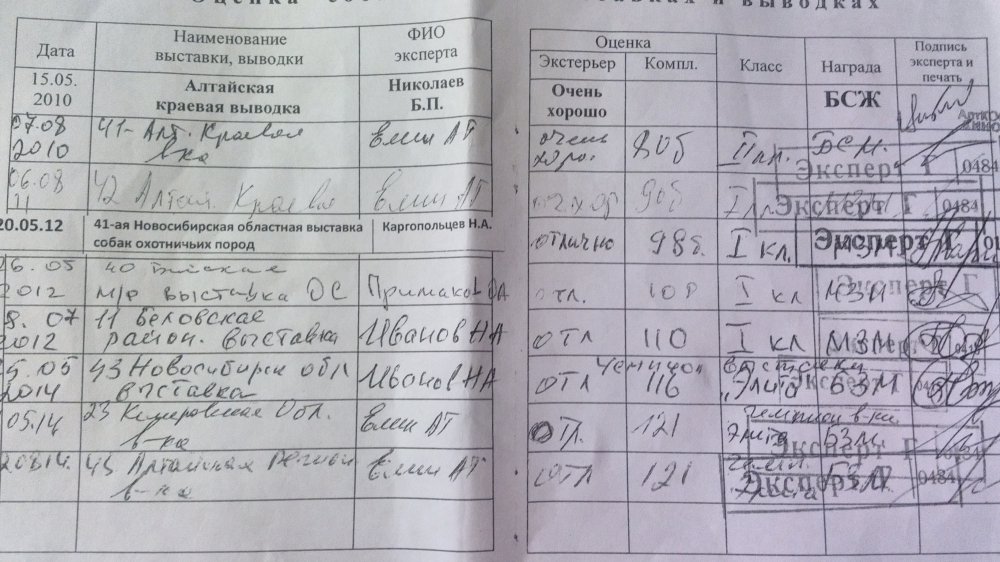 Дата
Наименование
выставки, выводки
ФИО
эксперта
15.05.
2010
Алтайская
краевая выводка
Николаев
Б.П.
07.08
2010
41- Алт. Краевая
в-ка
Елин АТ
06.08
11
42 Алтай. Краевая
Елин АТ
20.05.12
41-ая Новосибирская областная выставка
собак охотничьих пород
Каргопольцев Н.А.
26.05
2012
40
м/р выставка ОС
8.07
2012
11 Беловская
район. выставка
Иванов НА
5.05
2014
43 Новосибирск обл
выставка
Иванов НА
05.14
23 Кемеровская Обл.
в-ка
Елин АТ
2014.
45 Алтайская
в-ка
Елин АТ
выводках
Оценка
Экстерьер
Компл.
Класс
Награда
Подпись
эксперта и
печать
Очень
хорошо
БСЖ
очень
хоро.
80б
II пл.
БСМ.
Эксперт I
0484
оч хор
90б
Эксперт I
0484
отлично
98б.
I кл.
МЗМ
Эксперт I
отл.
100
I кл
МЗМ
Эксперт I
отл
110
I кл
МЗМ
Чемпион выставки
отл
116
Элита
БЗМ
Эксперт
Чемпион в-ки.
отл.
121
Элита
БЗМ.
Эксперт I
0484
отл
121
Элита
БЗМ.
Эксперт I
0484